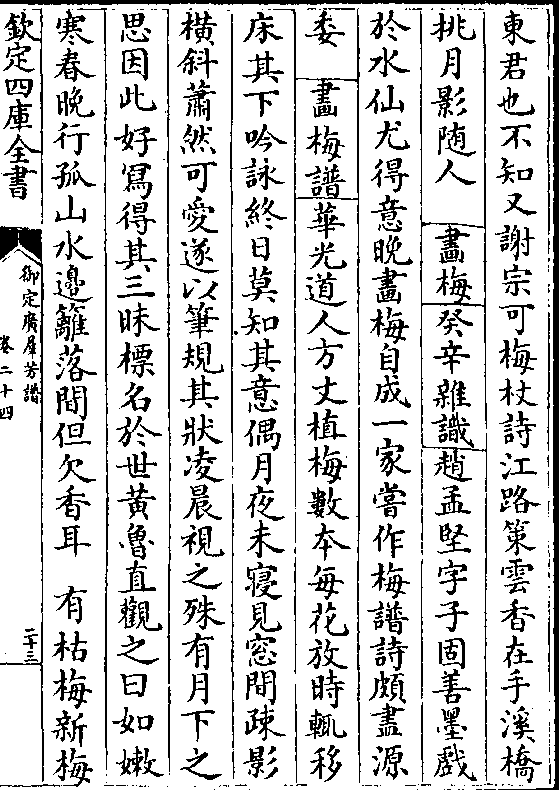 東君也不知又謝宗可梅杖詩江路策雲香在手溪橋
挑月影随人　畫梅癸辛雜識趙孟堅字子固善墨戲
於水仙尤得意晚畫梅自成一家嘗作梅譜詩頗盡源
委　畫梅譜華光道人方丈植梅數本每花放時輒移
床其下吟詠終日莫知其意偶月夜未寢見窓間疎影
橫斜蕭然可愛遂以筆規其狀凌晨視之殊有月下之
思因此好寫得其三昧標名於世黃魯直觀之曰如嫩
寒春晚行孤山水邊籬落間但欠香耳　有枯梅新梅
欽定四庫全書
御定廣羣芳譜
卷二十四
二十三